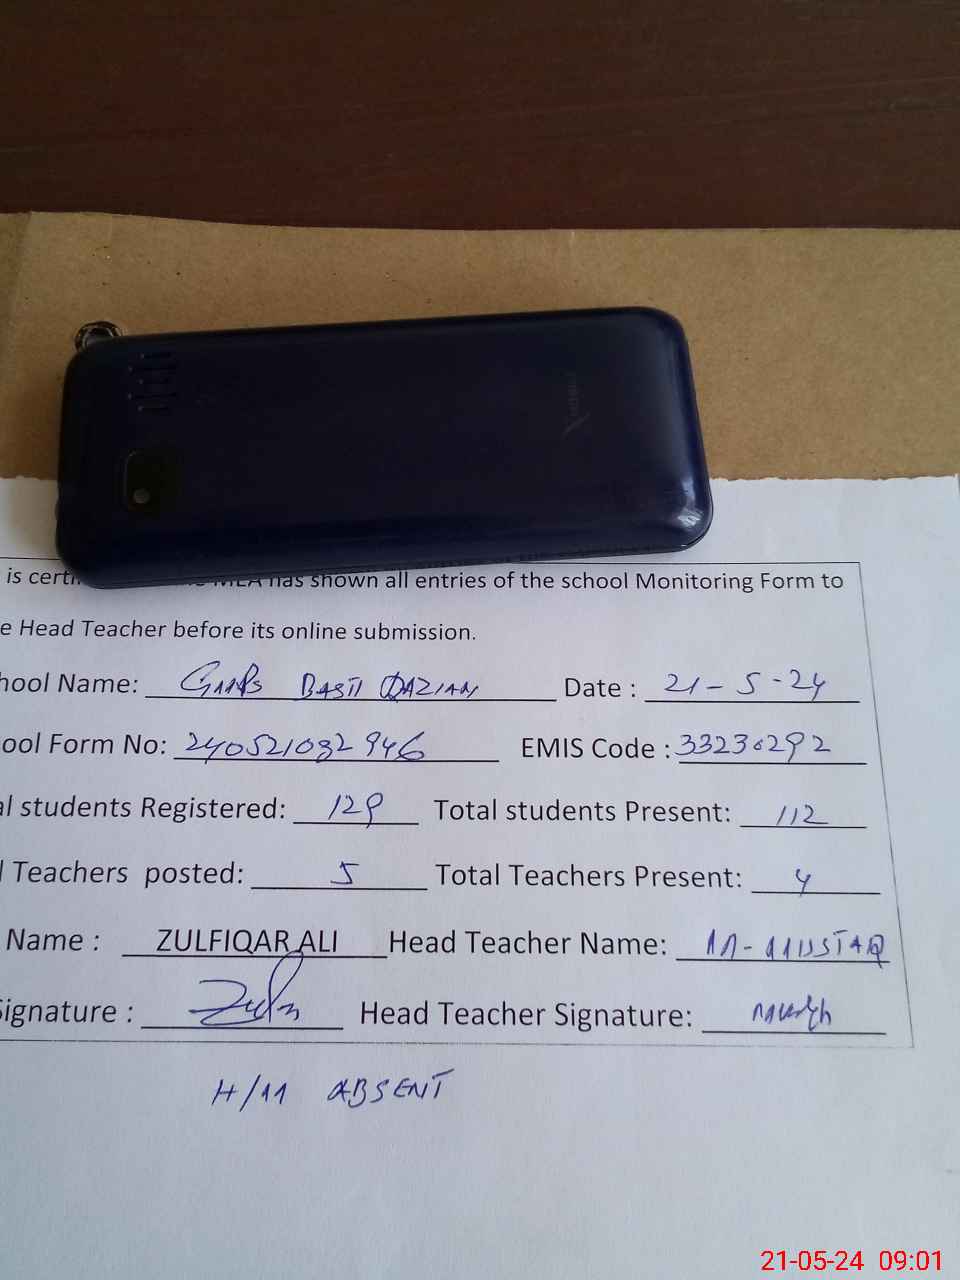 is certi MEA has shown all entries of the school Monitoring Form to
e Head Teacher before its online submission.
hool Name: GMPS BASTI QAZIAN Date : 21-5-24
ool Form No: 240521082946 EMIS Code : 33230292
al students Registered: 129 Total students Present: 112
l Teachers posted: 5 Total Teachers Present: 4
Name : ZULFIQAR ALI Head Teacher Name: M-MUSTAQ
Signature : Head Teacher Signature:
H/M ABSENT
21-05-24 09:01